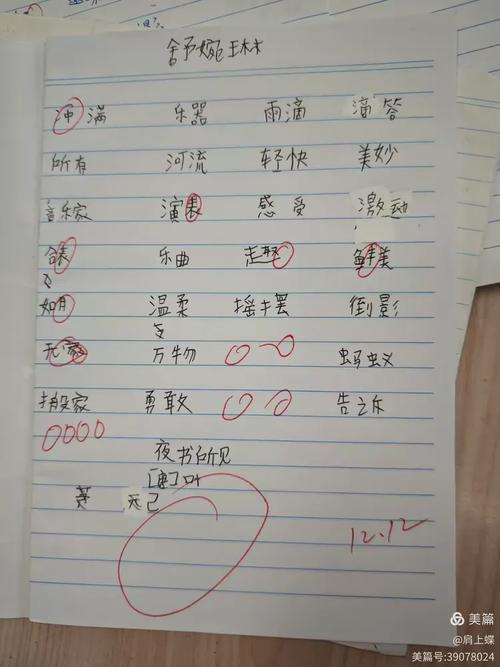 舒婉琳
冲满 乐器 雨滴 滴答
所有 河流 轻快 美妙
音乐家 演表 感受 激动
合表 乐曲 鲜美
温柔 摇摆 倒影
万物 蚂蚁
搬家 勇敢 告
夜书所见
12.12
美篇
@肩上蝶
美篇号:39078024